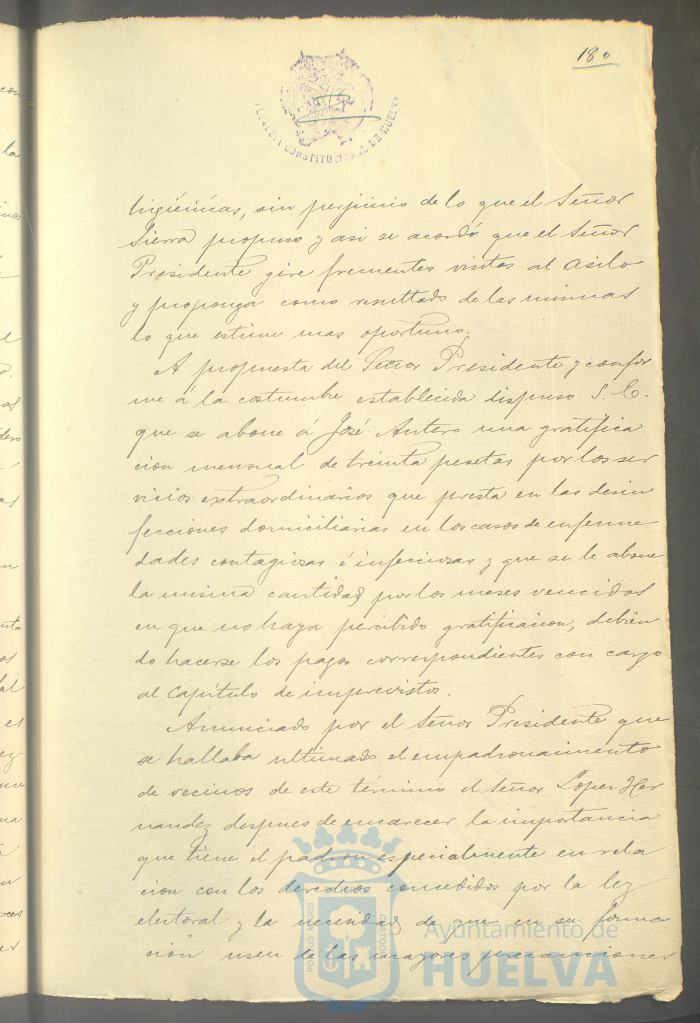 180
ALCALDIA CONSTITUCIONAL DE HUELVA
higiénicas, sin perjuicio de lo que el Señor
Sierra propuso y asi se acordó que el Señor
Presidente gire frecuentes visitas al Asilo
y proponga como resultado de las mismas
lo que estime mas oportuno.
A propuesta del Señor Presidente y confor
me á la costumbre establecida dispuso S. E.
que se abone á José Antero una gratifica
cion mensual de treinta pesetas por los ser
vicios extraordinarios que presta en las desin
fecciones domiciliarias en los casos de enferme
dades contagiosas é infecciosas y que se le abone
la misma cantidad por los meses vencidos
en que no haya percibido gratificacion, debien
do hacerse los pagos correspondientes con cargo
al Capítulo de imprevistos.
Anunciado por el Señor Presidente que
se hallaba ultimado el empadronamiento
de vecinos de este término el Señor Lopez Her
nandez despues de encarecer la importancia
que tiene el padron especialmente en rela
cion con los derechos concedidos por la ley
electoral y la necesidad de que en su forma
cion usen de las mayores precauciones
PORTUS MARIS CUSTODIA
Ayuntamiento de
HUELVA